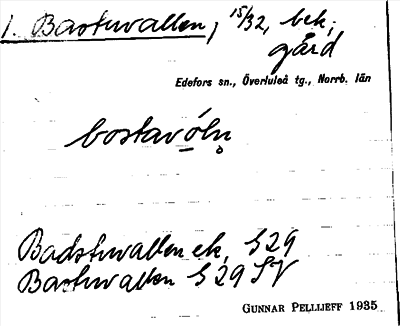 1. Bastuvallen, 15/32, bek.;
gård
Edefors sn., Överluleå tg., Norrb. län
bostavóln̥
Badstuvallen ek. §29
Bastuvallen §29 SV
GUNNAR PELLIJEFF 1935